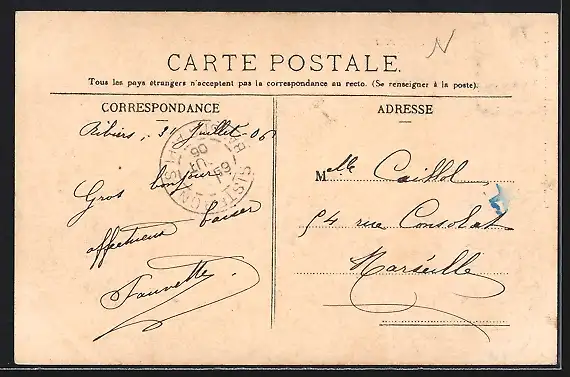 N
CARTE POSTALE.
Tous les pays étrangers n'acceptent pas la correspondance au recto. (Se renseigner à la poste).
CORRESPONDANCE
Ribiers, 31 Juillet 06
Gros bonjour
affectueux baiser
Fauvette
ADRESSE
Melle Caillol
54 rue Consolat
Marseille
SISTERON